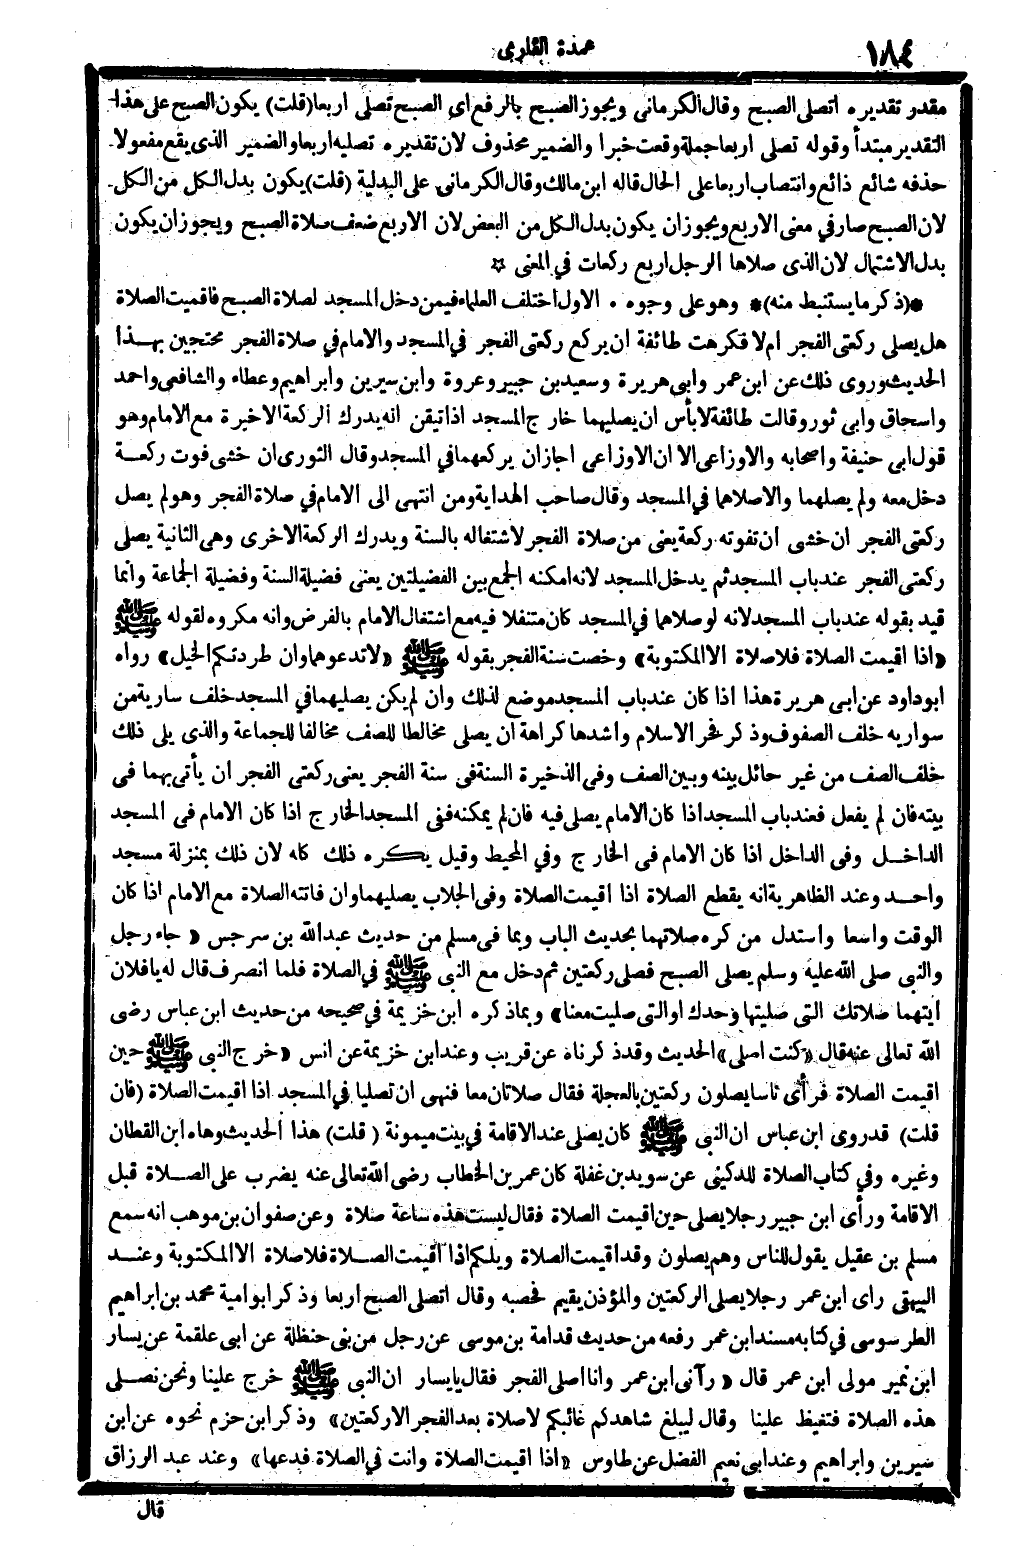 ١٨٤
عمدة القارى
مقدر تقديره اتصلى الصبح وقال الكرمانى ويجوز الصبح بالرفع اى الصبح تصلى اربعا (قلت) يكون الصبح على هذا
التقدير مبتدأ وقوله تصلى اربعا جملة وقعت خبرا والضمير محذوف لان تقديره تصليه اربعا والضمير الذى يقع مفعولا
حذفه شائع ذائع وانتصاب اربعا على الحال قاله ابن مالك وقال الكرمانى على البدلية (قلت) يكون بدل الكل من الكل
لان الصبح صار في معنى الاربع ويجوز ان يكون بدل الكل من البعض لان الاربع ضعف صلاة الصبح ويجوز ان يكون
بدل الاشتمال لان الذى صلاها الرجل اربع ركعات في المعنى ☆
*(ذكر ما يستنبط منه)* وهو على وجوه • الاول اختلف العلماء فيمن دخل المسجد لصلاة الصبح فاقيمت الصلاة
هل يصلى ركعتى الفجر ام لا فكرهت طائفة ان يركع ركعتى الفجر في المسجد والامام في صلاة الفجر محتجين بهذا
الحديث وروى ذلك عن ابن عمر وابى هريرة وسعيد بن جبير وعروة وابن سيرين وابراهيم وعطاء والشافعى واحمد
واسحاق وابى ثور وقالت طائفة لا بأس ان يصليهما خارج المسجد اذا تيقن انه يدرك الركعة الاخيرة مع الامام وهو
قول ابى حنيفة واصحابه والاوزاعى الا ان الاوزاعى اجاز ان يركعهما في المسجد وقال الثورى ان خشى فوت ركعة
دخل معه ولم يصلهما والا صلاهما في المسجد وقال صاحب الهداية ومن انتهى الى الامام في صلاة الفجر وهو لم يصل
ركعتى الفجر ان خشى ان تفوته ركعة يعنى من صلاة الفجر لاشتغاله بالسنة ويدرك الركعة الاخرى وهى الثانية يصلى
ركعتى الفجر عند باب المسجد ثم يدخل المسجد لانه امكنه الجمع بين الفضيلتين يعنى فضيلة السنة وفضيلة الجماعة وانما
قيد بقوله عند باب المسجد لانه لو صلاهما في المسجد كان متنفلا فيه مع اشتغال الامام بالفرض وانه مكروه لقوله ﷺ
«اذا اقيمت الصلاة فلا صلاة الا المكتوبة» وخصت سنة الفجر بقوله ﷺ «لا تدعوهما وان طردتكم الخيل» رواه
ابو داود عن ابى هريرة هذا اذا كان عند باب المسجد موضع لذلك وان لم يكن يصليهما في المسجد خلف سارية من
سواريه خلف الصفوف وذكر فخر الاسلام واشدها كراهة ان يصلى مخالطا للصف مخالفا للجماعة والذى يلى ذلك
خلف الصف من غير حائل بينه وبين الصف وفى الذخيرة السنة فى سنة الفجر يعنى ركعتى الفجر ان يأتى بهما فى
بيته فان لم يفعل فعند باب المسجد اذا كان الامام يصلى فيه فان لم يمكنه ففى المسجد الخارج اذا كان الامام فى المسجد
الداخل وفى الداخل اذا كان الامام فى الخارج وفي المحيط وقيل يكره ذلك كله لان ذلك بمنزلة مسجد
واحد وعند الظاهرية انه يقطع الصلاة اذا اقيمت الصلاة وفى الجلاب يصليهما وان فاتته الصلاة مع الامام اذا كان
الوقت واسعا واستدل من كره صلاتهما بحديث الباب وبما فى مسلم من حديث عبد الله بن سرجس «جاء رجل
والنبى صلى الله عليه وسلم يصلى الصبح فصلى ركعتين ثم دخل مع النبى ﷺ في الصلاة فلما انصرف قال له يا فلان
ايتهما صلاتك التى صليتها وحدك او التى صليت معنا» وبما ذكره ابن خزيمة في صحيحه من حديث ابن عباس رضى
الله تعالى عنه قال «كنت اصلى» الحديث وقد ذكرناه عن قريب وعند ابن خزيمة عن انس «خرج النبى ﷺ حين
اقيمت الصلاة فرأى ناسا يصلون ركعتين بالعجلة فقال صلاتان معا فنهى ان تصليا في المسجد اذا اقيمت الصلاة (فان
قلت) قد روى ابن عباس ان النبى ﷺ كان يصلى عند الاقامة في بيت ميمونة (قلت) هذا الحديث وهاه ابن القطان
وغيره وفي كتاب الصلاة للدكينى عن سويد بن غفلة كان عمر بن الخطاب رضى الله تعالى عنه يضرب على الصلاة قبل
الاقامة ورأى ابن جبير رجلا يصلى حين اقيمت الصلاة فقال ليست هذه ساعة صلاة وعن صفوان بن موهب انه سمع
مسلم بن عقيل يقول للناس وهم يصلون وقد اقيمت الصلاة ويلكم اذا اقيمت الصلاة فلا صلاة الا المكتوبة وعند
البيهقى راى ابن عمر رجلا يصلى الركعتين والمؤذن يقيم فحصبه وقال اتصلى الصبح اربعا وذكر ابو امية محمد بن ابراهيم
الطرسوسى في كتابه مسند ابن عمر رفعه من حديث قدامة بن موسى عن رجل من بنى حنظلة عن ابى علقمة عن يسار
ابن نمير مولى ابن عمر قال «رآنى ابن عمر وانا اصلى الفجر فقال يا يسار ان النبى ﷺ خرج علينا ونحن نصلى
هذه الصلاة فتغيظ علينا وقال ليبلغ شاهدكم غائبكم لا صلاة بعد الفجر الا ركعتين» وذكر ابن حزم نحوه عن ابن
سيرين وابراهيم وعند ابى نعيم الفضل عن طاوس «اذا اقيمت الصلاة وانت في الصلاة فدعها» وعند عبد الرزاق
قال